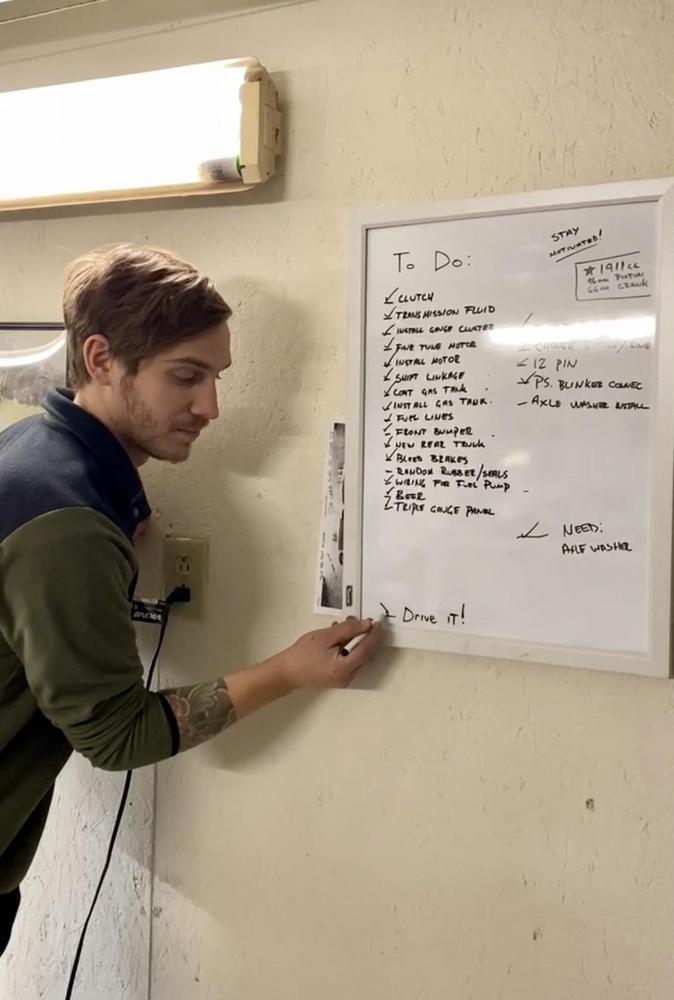 To Do:
CLUTCH
TRANSMISSION FLUID
INSTALL GAUGE CLUSTER
FINE TUNE MOTOR
INSTALL MOTOR
SHIFT LINKAGE
COAT GAS TANK
INSTALL GAS TANK.
FUEL LINES
FRONT BUMPER
NEW REAR TRUNK
BLEED BRAKES
RANDOM RUBBER/SEALS
WIRING FOR FUEL PUMP
BEER
TRIPLE GAUGE PANEL
Drive it!
STAY
MOTIVATED!
★ 1911cc
PISTON
CRANK
CHANGE LINE
12 PIN
PS. BLINKER CONNEC
- AXLE WASHER INSTALL
NEED:
AXLE WASHER